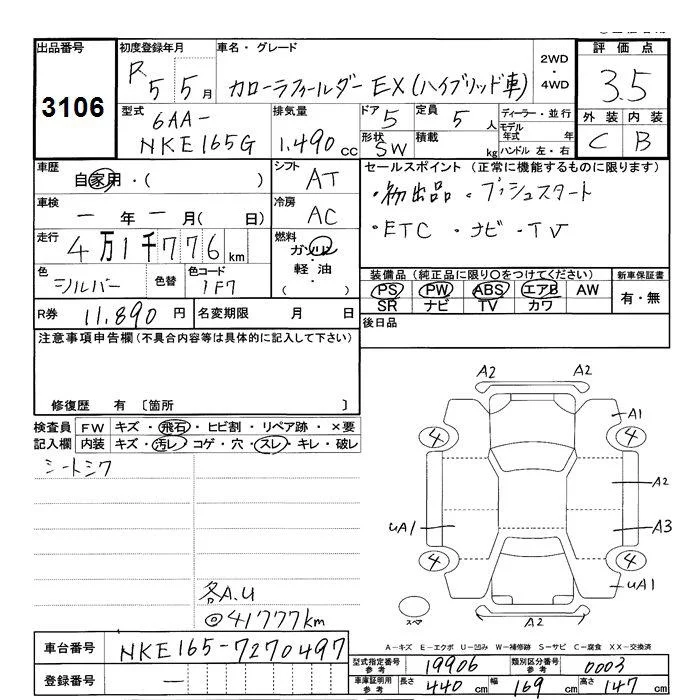 出品番号
3106
初度登録年月
R 5 5 月
車名・グレード
カローラフィールダー EX (ハイブリッド車)
2WD
・
4WD
評価点
3.5
外装 内装
C B
型式
6AA-
NKE165G
排気量
1.490 cc
ドア 5
形状 SW
定員 5 人
積載 kg
ディーラー・並行
モデル年式 年
ハンドル 左・右
車歴
自家用・( )
シフト
AT
車検
一 年 一 月( 日)
冷房
AC
走行
4万1千776 km
燃料
ガソリン
・
軽油
・
( )
色
シルバー
色替
色コード
1F7
R券 11.890 円
名変期限 月 日
セールスポイント (正常に機能するものに限ります)
・初出品 ・プッシュスタート
・ETC ・ナビ・TV
装備品 (純正品に限り○をつけてください)
新車保証書
PS PW ABS エアB AW
SR ナビ TV カワ
有・無
後日品
注意事項申告欄 (不具合内容等は具体的に記入して下さい)
修復歴 有 〔箇所 〕
検査員 FW キズ・飛石・ヒビ割・リペア跡・×要
記入欄 内装 キズ・汚レ・コゲ・穴・スレ・キレ・破レ
シートシワ
各A.U
◎41777km
A2 A2
A1
4 4
A2
UA1
A3
4 4
UA1
スペア
A2
A-キズ E-エクボ U-凹み W-補修跡 S-サビ C-腐食 XX-交換済
車台番号 NKE165-7270497
登録番号 一
型式指定番号 参考 19906
類別区分番号 参考 0003
車庫証明用 参考 長さ 440 cm 幅 169 cm 高さ 147 cm